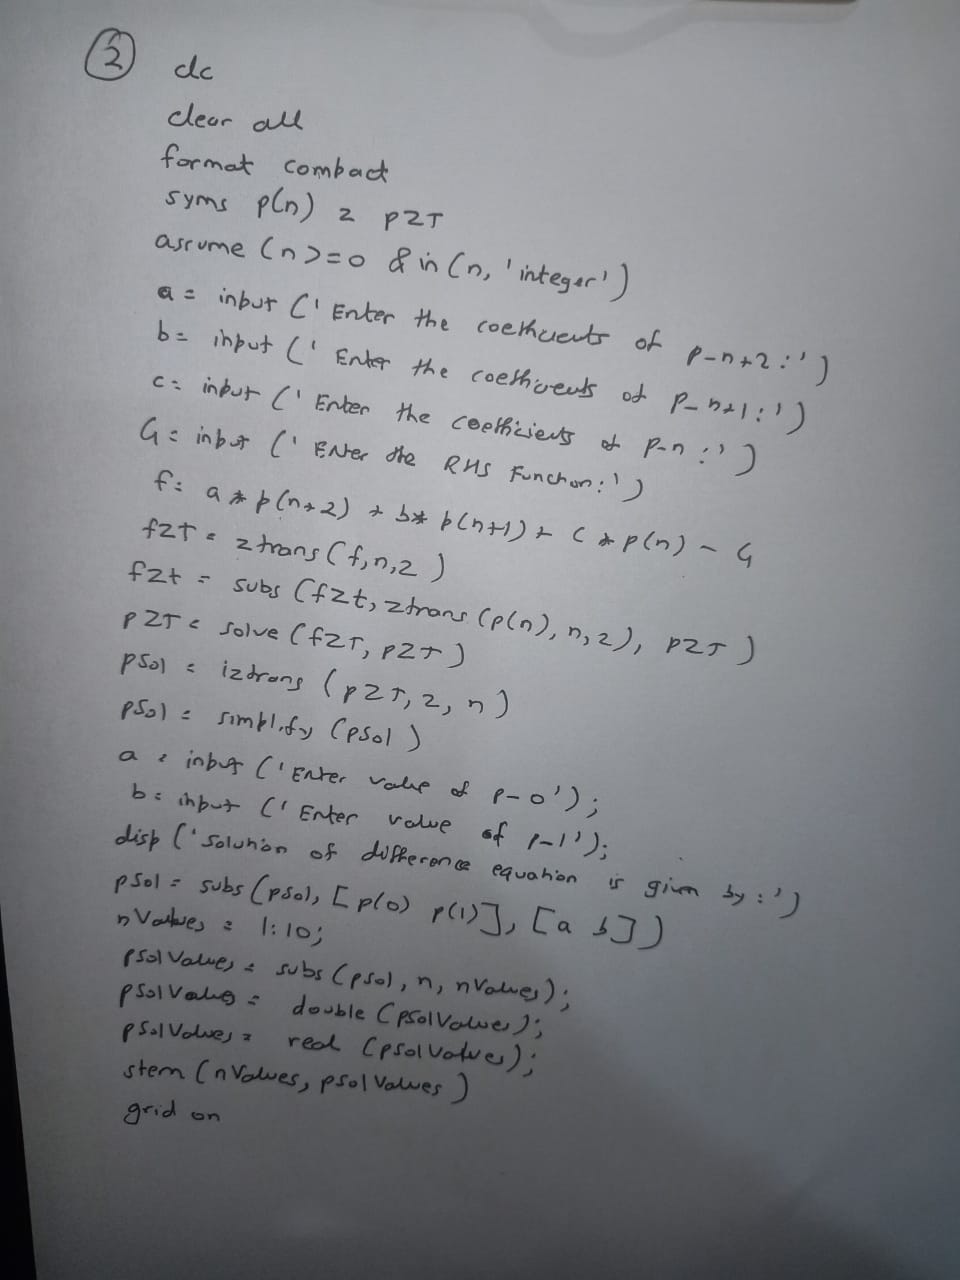 2
clc
clear all
format compact
syms p(n) z pZT
assume (n>=0 & in (n, 'integer')
a = input ('Enter the coefficients of p-n+2:')
b= input (' Enter the coefficients of p-n+1:')
c= input (' Enter the coefficients of p-n:')
G= input (' Enter the RHS Function:')
f= a * p(n+2) + b* p(n+1) + c * p(n) - G
fZT = ztrans (f,n,z)
fzt = subs (fzt, ztrans (p(n), n, z), pZT )
pZT = solve (fZT, pZT)
psol = iztrans (pZT, z, n)
psol = simplify (psol)
a = input ('Enter value of p-0');
b= input (' Enter value of p-1');
disp ('solution of difference equation is given by:')
psol = subs (psol, [p(0) p(1)], [a b])
nValues = 1:10;
psolValues = subs (psol, n, nValues);
psolValues = double (psolValues);
psolValues = real (psolValues);
stem (nValues, psolValues)
grid on